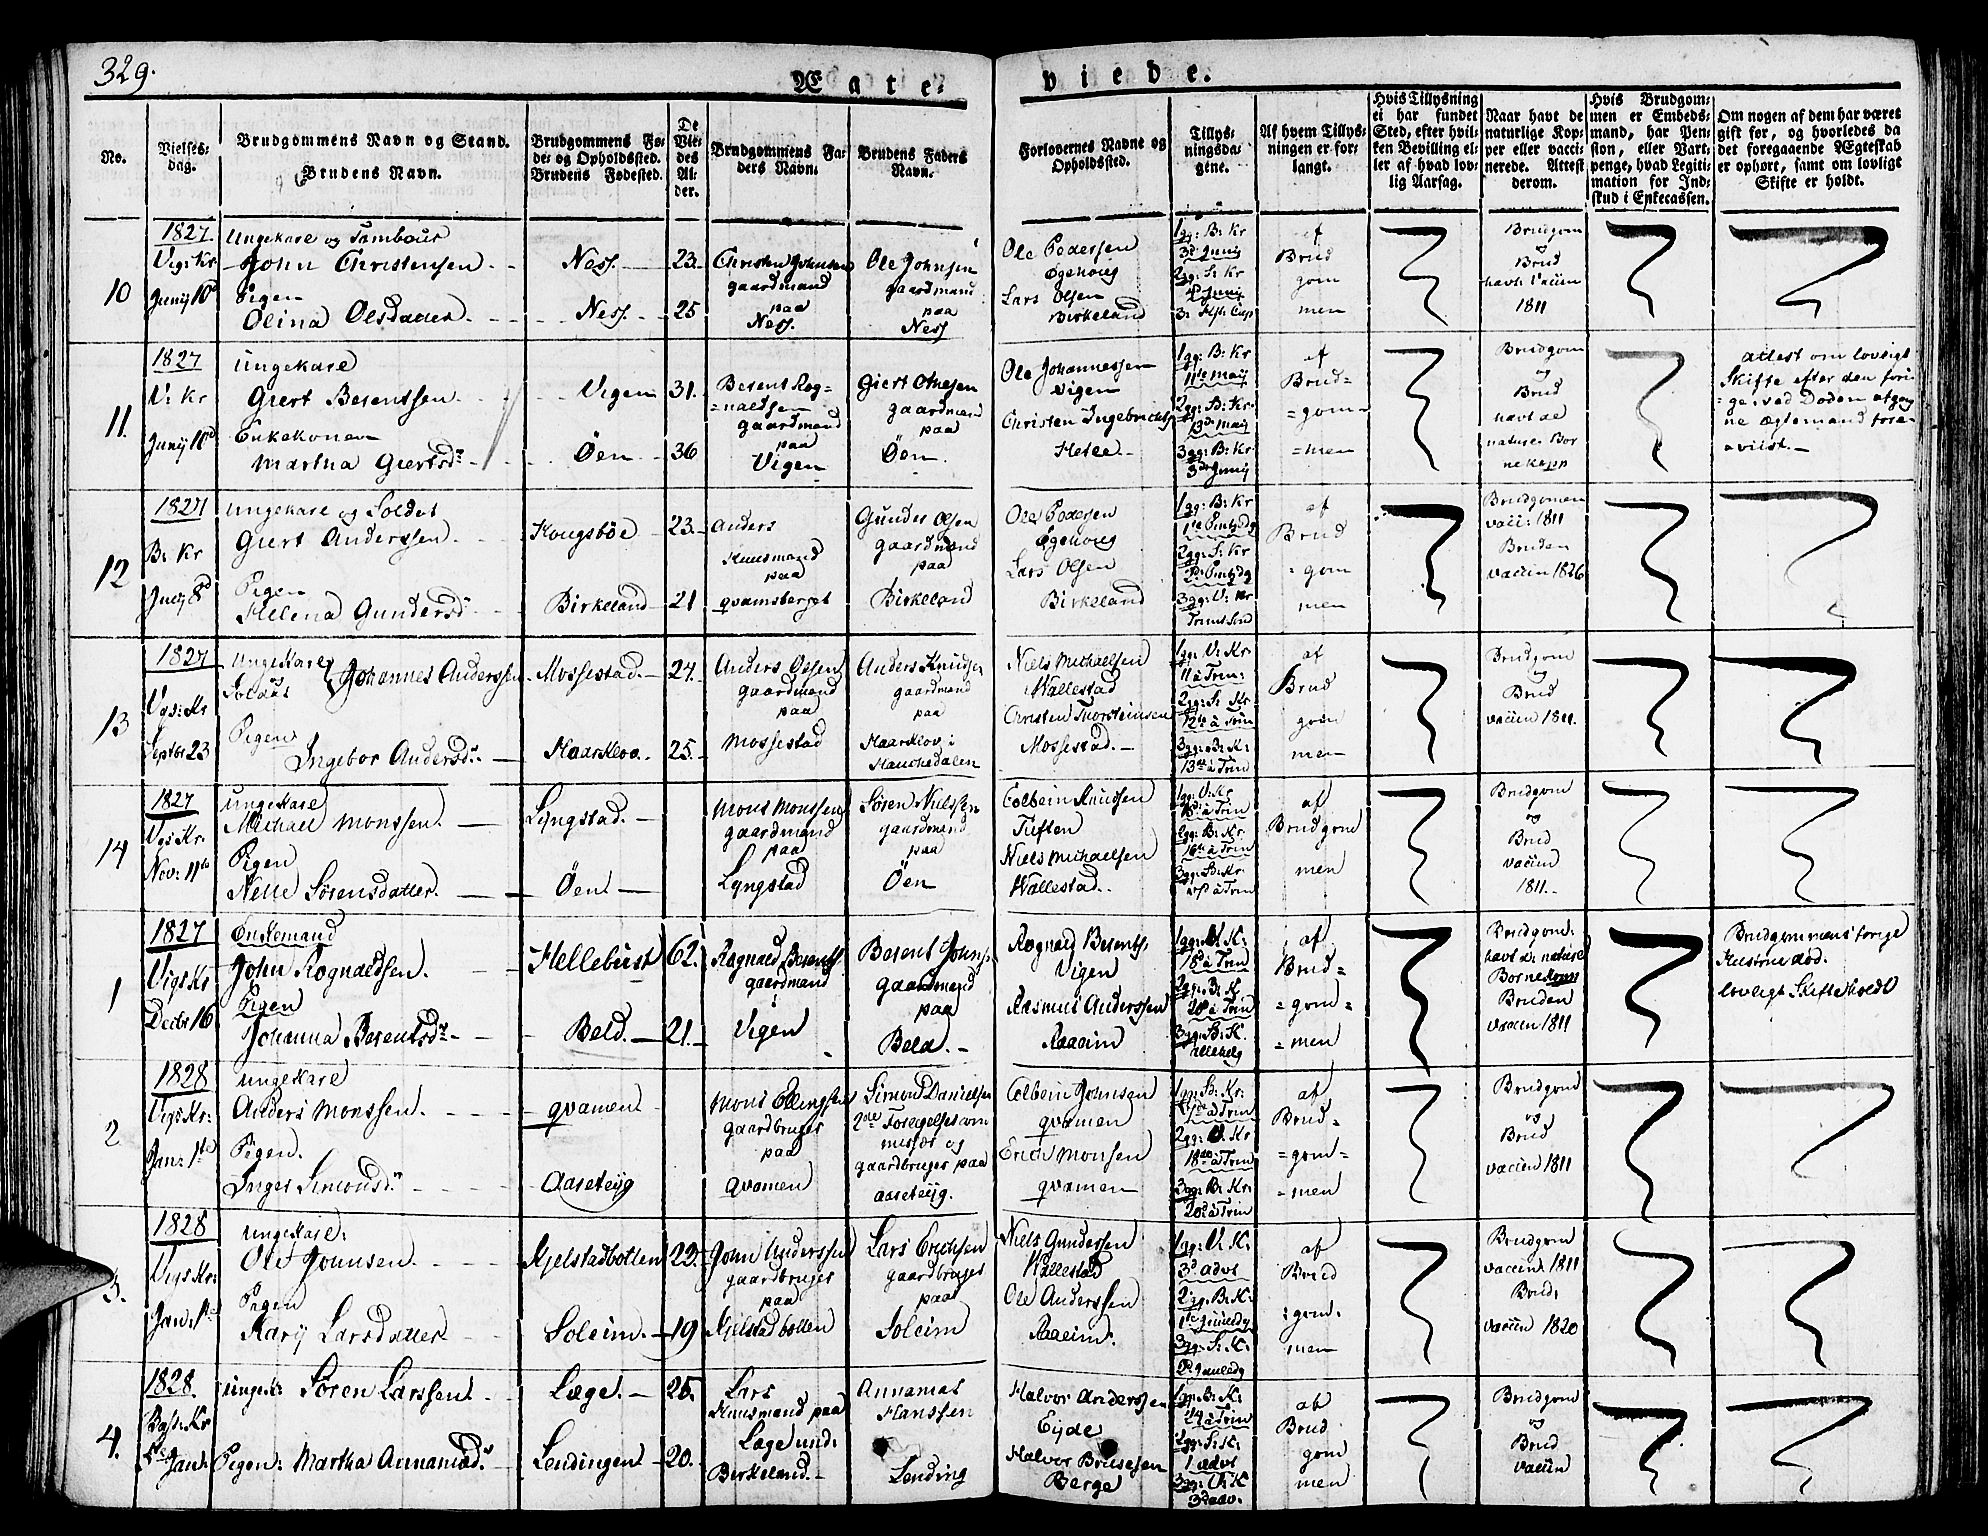 329.
Æ g t e
v i e d e.
No.
Vielses-
dag.
Brudgommens Navn og Stand.
Brudens Navn.
Brudgommens Fø-
de- og Opholdssted.
Brudens Fødested.
De
Vie-
des
Al-
der.
Brudgommens Fa-
ders Navn.
Brudens Faders
Navn.
Forlovernes Navne og
Opholdssted.
Tillys-
ningsda-
gene.
Af hvem Tillys-
ningen er for-
langt.
Hvis Tillysning
ei har fundet
Sted, efter hvil-
ken Bevilling el-
ler af hvad lov-
lig Aarsag.
Naar havt de
naturlige Kop-
per eller vacci-
nerede. Attest
derom.
Hvis Brudgom-
men er Embeds-
mand, har Pen-
sion, eller Vart-
penge, hvad Legiti-
mation for Ind-
skud i Enkecassen.
Om nogen af dem har været
gift før, og hvorledes da
det foregaaende Ægteskab
er ophørt, samt om lovligt
Skifte er holdt.
10
1827.
Vigs: Kr
Junij 10d
Ungekarl og Tambour
John Christensen
Pigen
Olina Olsdatter
Ness.
Ness.
23.
25
Christen Johnsen
gaardmand
paa
Ness.
Ole Johnsen
gaardmand
paa
Ness
Ole Pedersen
Øgehoug
Lars Olsen
Birkeland
1 gg: B: Kr
3d Junij
2 gg: S: Kr
4d Junij
af
Brud
gom
men
Brudgom
og
Brud
havt Vaccin
1811
11.
1827
V: Kr
Junij 10d
Ungekarl
Giert Berentsen
Enkekonen
Martha Giertsdr
Vigen
Öen
31.
36
Berent Rog-
=naldsen
gaardmand
paa
Vigen
Giert Olnesen
gaardmand
paa
Öen
Ole Johannessen
Vigen
Christen Ingebrichts
Helle
1 gg: B: Kr
11te Maij
2 gg: B: Kr
13d Maij
3 gg: B: Kr
3d Junij
af
Brud=
=gom=
=men
Brudgom
og
Brud
havt de
naturl: Bör
nekopp
attest om lovligt
Skifte efter den fori-
=ge ved Döden afgang
ne Ægtemand fore-
=vist.
12
1827
B: Kr
Julij 8d
Ungekarl og Soldat
Giert Anderssen
Pigen
Helena Gundersd
Hougsböe
Birkeland
23.
21
Anders
Huusmand
paa
qvamsberget
Gunder Olsen
gaardmand
paa
Birkeland
Ole Pedersen
Øgehoug
Lars Olsen
Birkeland
1 gg: B: Kr
1te Pintsdg
2 gg: S: Kr
2d Pintsdg
3 gg: V: Kr
Trinit Sön
af
Brud
=gom
men
Brudgomen
vacci: 1811
Bruden
vaccin 1826
13
1827
Vgs: Kr
Septbr 23
Ungekarl
Soldat
Johannes Anderssen
Pigen
Ingebor Andersd:
Mossestad.
Haarklov.
24.
25.
Anders Olsen
gaardmand
paa
Mossestad
Anders Knudsen
gaardmand
paa
Haarklov i
Haukedalen
Niels Michaelsen
Wallestad
Christen Thorsteinsen
Mossestad.
1 gg: V: Kr
11 à Trin:
2 gg: S: Kr
12te à Trin
3 gg: B: K:
13de à Trin
af
Brud
gom
men
Brudgom
og
Brud
vaccin 1811.
14
1827
Vgs: Kr.
Nov: 11te
Ungekarl
Michael Monssen.
Pigen
Nelle Sörensdatter.
Lyngstad.
Öen
Mons Monssen
gaardmand
paa
Lyngstad
Sören Nielssen
gaardmand
paa
Öen
Colbein Knudsen
Tuften
Niels Michaelsen
Wallestad.
1 gg: V: Kr
à Trin
2 gg: B: Kr.
16te à Trin
3 gg: S: Kr:
à Trin
af
Brudgom
men
Brudgom
og
Brud
vaccin
1811.
1
1827
Vigs Kr
Decbr 16
Enkemand
John Rognaldsen.
Pigen
Johanna Berentsdr
Hellebust
Beld.
62.
21.
Rognald Berents.
gaardmand
i
Vigen
Berent Johns:
gaardmand
paa
Beld.
Rognald Berents.
Vigen
Rasmus Anderssen
Aaeim
1 gg: V: K:
18d à Trin
2 gg: B: K.
20d à Trin
3 gg: S: K.
Allehelg
af
Brud=
=gom=
=men
Brudgom:
havt de naturl
Börnekopp
Bruden
vaccin 1811
Brudgommens forige
Kusone död.
lovligt Skifte holdt
2
1828
Vigs Kr:
Janr 1te
Ungekarl
Anders Monssen.
Pigen.
Inger Simonsd:
qvamen
Aaseteiig
Mons Ellingssen
gaardbruger
paa
qvamen
Simon Danielsen
2de Forlegelsecom
missær og
gaardbruger paa
aaseteijg.
Colbein Johnsen
qvamen
Erich Monsen
qvamen
1 gg: S: Kr:
à Trin
2 gg: V. Kr
18de à Trin
3 gg: B: Kr:
20d à Trin
af
Brud=
=gom=
=men
Brudgom
og
Brud
vaccin 1811
3.
1828
Vigs Kr:
Jan: 1te
Ungekarl:
Ole Johnsen
Pigen
Karij Larsdatter
Kjelstadbotten
Soleim.
22.
19
John Anderssen
gaardbruger
paa
Kjelstadbotten
Lars Erichsen
gaardbruger
paa
Soleim
Niels Gunderssen
Wallestad
Ole Anderssen
Aaeim.
1 gg: V: K:
3d advt
2 gg: B: K:
1te juledg
3 gg: S: K:
2d Juuledg
af
Brud
=gom.
men
Brudgom
vaccin: 1811
Brud.
vaccin 1820
4.
1828.
Bast: Kr
Jan:
Ungek: Sören Larssen
Pigen: Martha Annaniad:
Læge.
Lendingen
25.
20.
Lars
Huusmand paa
Læge und:
Birkeland.
Annanias
Hanssen
Lending
Halvor Anderssen
Eijde
Halvor Brusesen
Berge
1 gg: B: K:
24 à Trin
2 gg: S: K:
1 advt
3 gg: V: K
3d adv.
af
Brud
gom
men
Brudgom
og
Brud
vaccin